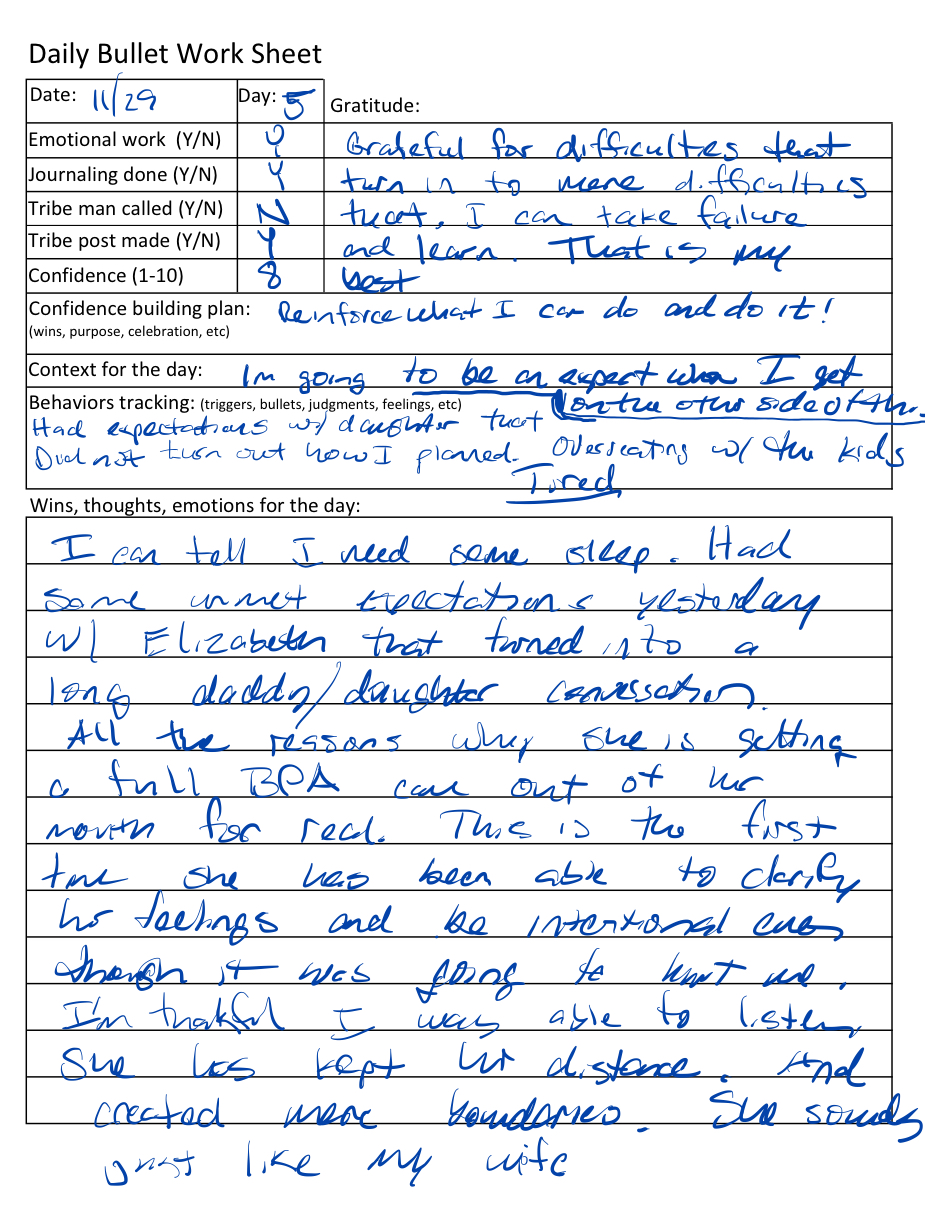 Daily Bullet Work Sheet
Date: 11/29 Day: 5
Gratitude:
Emotional work (Y/N) Y Grateful for difficulties that
Journaling done (Y/N) Y turn in to more difficulties
Tribe man called (Y/N) N that, I can take failure
Tribe post made (Y/N) Y and learn. That is my
Confidence (1-10) 8 best
Confidence building plan: Reinforce what I can do and do it!
(wins, purpose, celebration, etc)
Context for the day: Im going to be an expert when I get
on the other side of this.
Behaviors tracking: (triggers, bullets, judgments, feelings, etc)
Had expectations w/ daughter that
Did not turn out how I planned. Overeating w/ the kids
Tired
Wins, thoughts, emotions for the day:
I can tell I need some sleep. Had
some unmet expectations yesterday
w/ Elizabeth that turned into a
long daddy/daughter conversation.
All the reasons why she is getting
a full BPA came out of her
mouth for real. This is the first
time she has been able to clarify
her feelings and be intentional even
though it was going to hurt me.
I'm thakful I was able to listen,
She has kept her distance. And
created more boundaries. She sounds
just like my wife